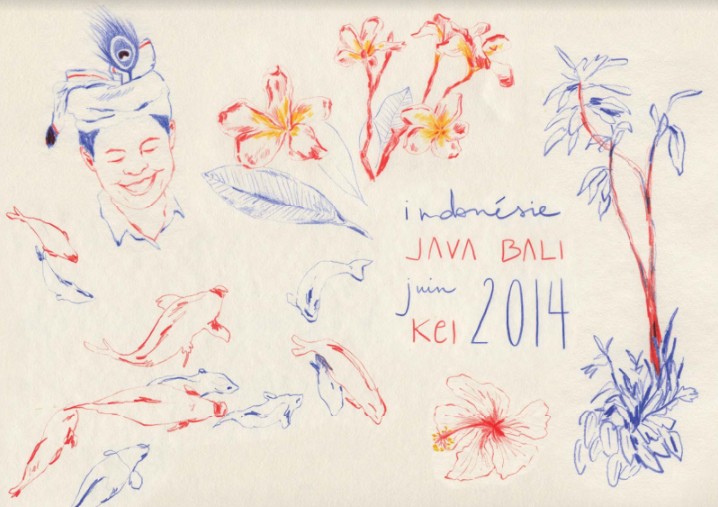 indonésie
JAVA BALI
juin
KEI 2014